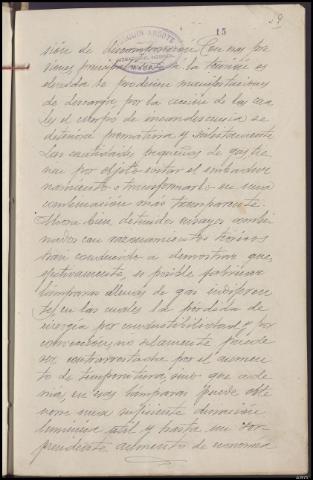 15
sión de descomposición. Con voz pre
vines, principalmente si la tensión es
elevada se producen manifestaciones
de descarga, por la acción de las cua
les el cuerpo de incandescencia se
deteriora prematura y súbitamente.
Las cantidades pequeñas de gas, tie
nen por objeto evitar el
namiento o transformarlo en una
combinación más transparente.
Ahora bien detenidos ensayos combi
nados con razonamientos teóricos
han conducido a demostrar que,
efectivamente, es posible fabricar
lámparas llenas de gas indiferen
te, en las cuales la pérdida de
energía por conductibilidad y por
convección, no solamente puede
ser contrarrestada por el aumen
to de temperatura, sino que ade
más, en esas lámparas puede obte
nerse una suficiente duración
lumínica útil y hasta un sor
prendente aumento de economía